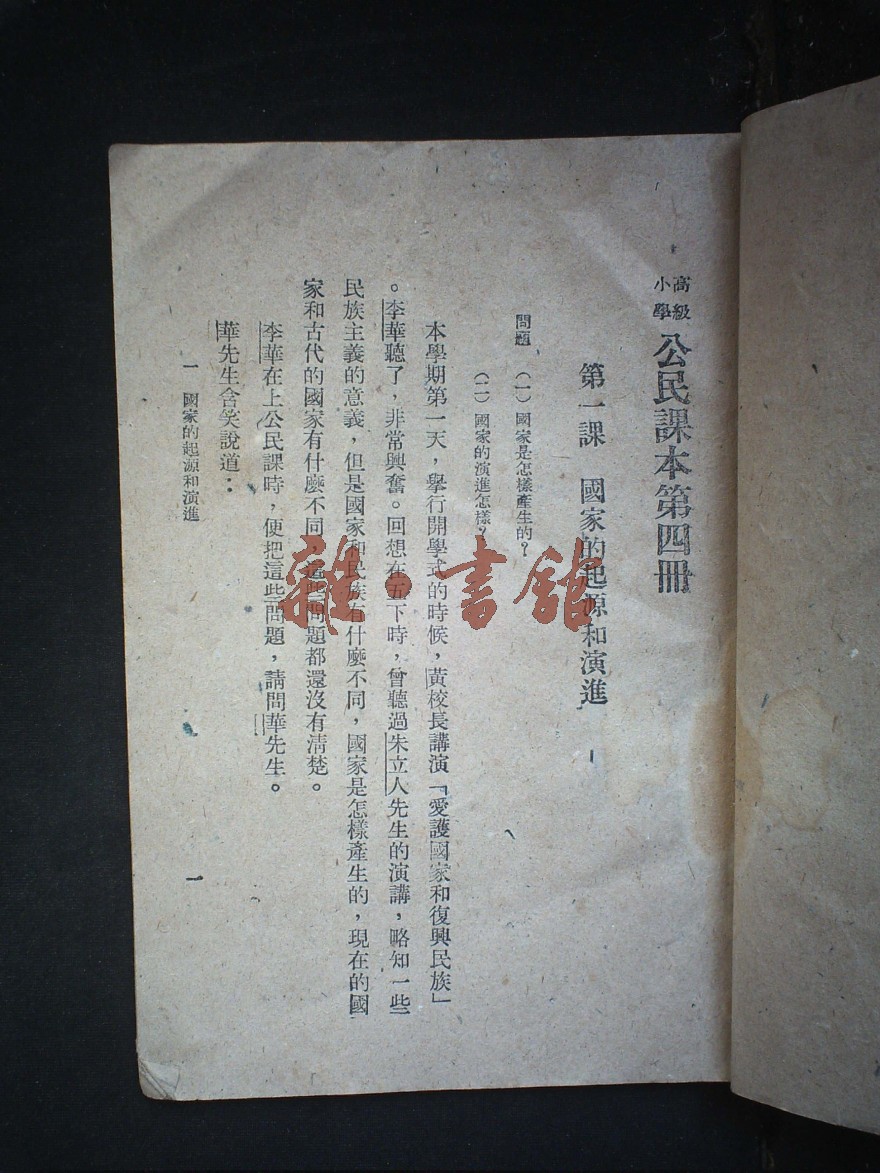 高級
小學
公民課本第四冊
第一課　國家的起源和演進
問題　（一）國家是怎樣產生的？
（二）國家的演進怎樣？
本學期第一天，舉行開學式的時候，黃校長講演「愛護國家和復興民族」
。李華聽了，非常興奮。回想在五下時，曾聽過朱立人先生的演講，略知一些
民族主義的意義，但是國家和民族有什麼不同，國家是怎樣產生的，現在的國
家和古代的國家有什麼不同，這些問題都還沒有清楚。
李華在上公民課時，便把這些問題，請問華先生。
華先生含笑說道：
一　國家的起源和演進
一
雜·書館